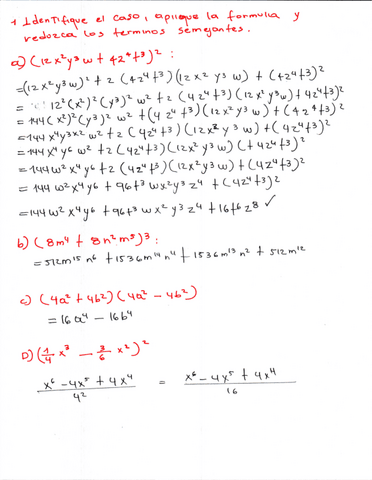 1 Identifique el caso, aplique la formula y
redozca los terminos semejantes.
a) (12x²y³w + 4z⁴t³)² :
= (12x²y³w)² + 2 (4z⁴t³)(12x²y³w) + (4z⁴t³)²
= 12²(x²)²(y³)² w² + 2 (4z⁴t³)(12x²y³w) + 4z⁴t³)²
= 144(x²)²(y³)² w² + (4z⁴t³)(12x²y³w) + (4z⁴t³)²
= 144x⁴y³ˣ² w² + 2 (4z⁴t³)(12x²y³w) + (4z⁴t³)²
= 144x⁴y⁶ w² + 2 (4z⁴t³)(12x²y³w) (+4z⁴t³)²
= 144w²x⁴y⁶ + 2 (4z⁴t³)(12x²y³w) + (4z⁴t³)²
= 144w²x⁴y⁶ + 96t³wx²y³z⁴ + (4z⁴t³)²
= 144w²x⁴y⁶ + 96t³wx²y³z⁴ + 16t⁶z⁸ ✓
b) (8m⁴ + 8n²m⁵)³ :
= 512m¹⁵n⁶ + 1536m¹⁴n⁴ + 1536m¹³n² + 512m¹²
c) (4a² + 4b²)(4a² - 4b²)
= 16a⁴ - 16b⁴
D) (1/4 x³ - 3/6 x²)²
x⁶ - 4x⁵ + 4x⁴ / 4² = x⁶ - 4x⁵ + 4x⁴ / 16